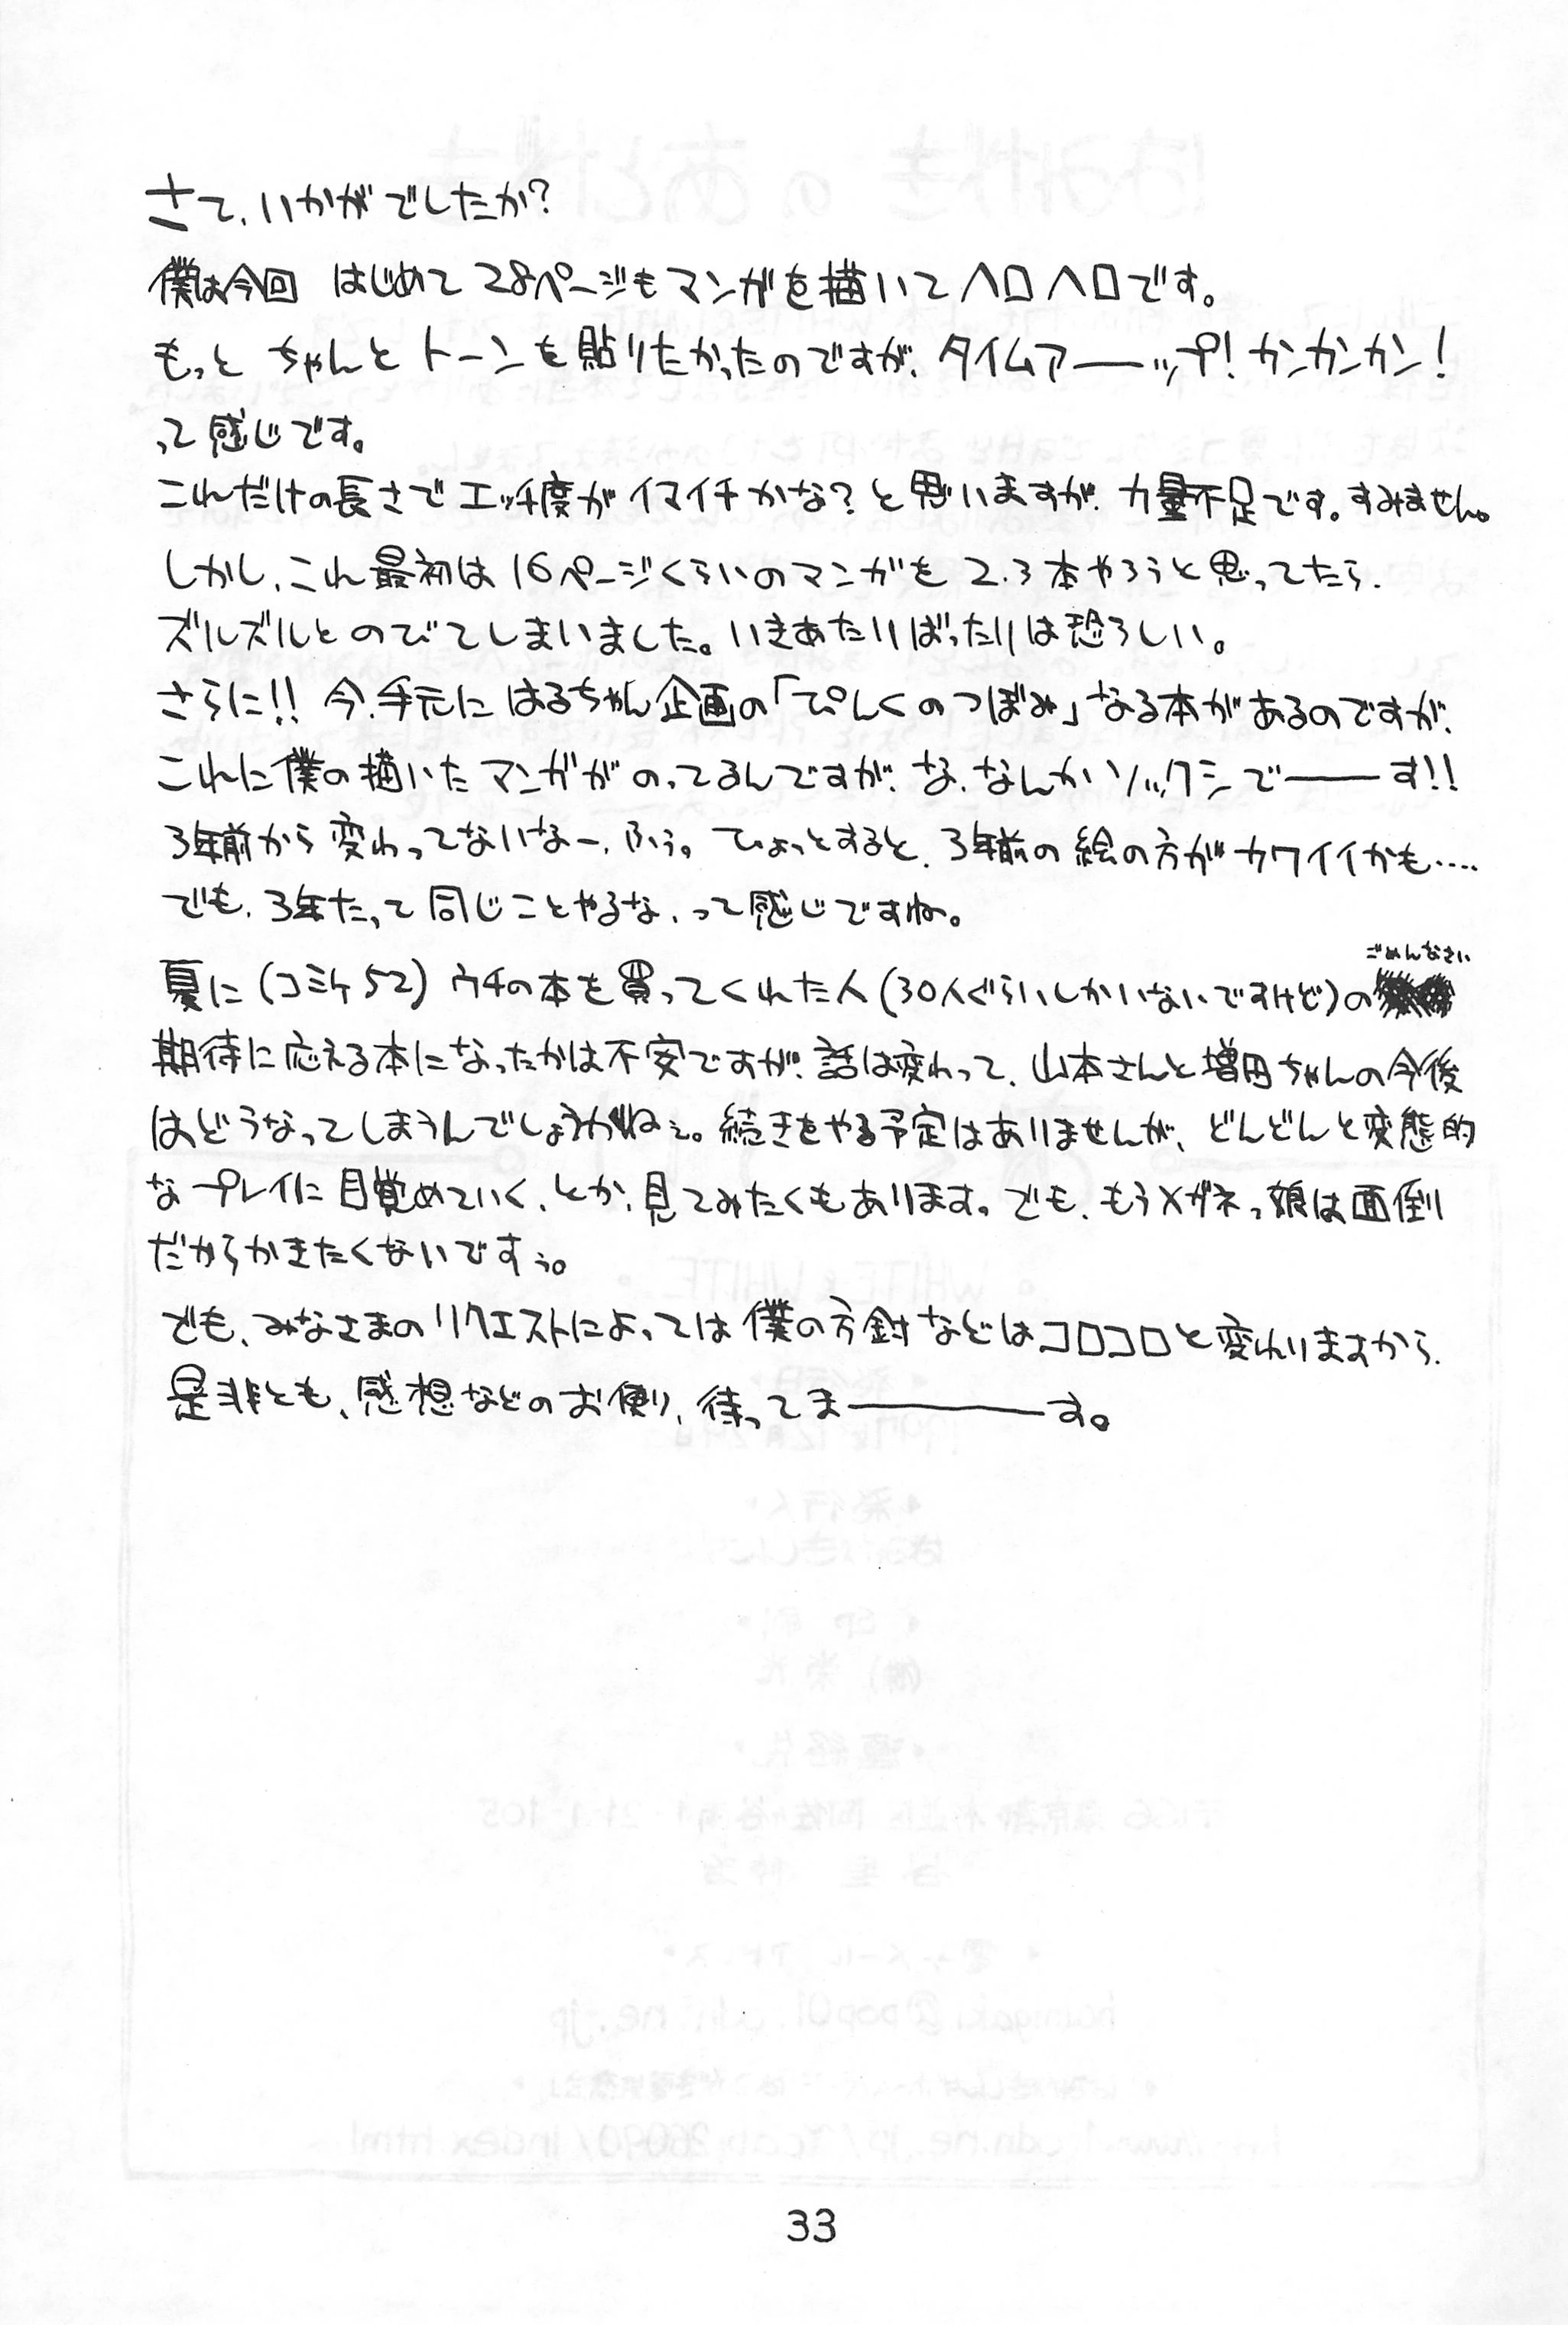 さて、いかがでしたか?
僕は今回 はじめて28ページもマンガを描いてヘロヘロです。
もっと ちゃんとトーンを貼りたかったのですが、タイムアーーップ!カンカンカン!
って感じです。
これだけの長さでエッチ度がイマイチかな?と思いますが、力量不足です。すみません。
しかし、これ最初は16ページくらいのマンガを2.3本やろうと思ってたら、
ズルズルとのびてしまいました。いきあたりばったりは恐ろしい。
さらに!!今、手元にはるちゃん企画の「ぴんくのつぼみ」なる本があるのですが、
これに僕の描いたマンガがのってるんですが、な、なんかソックシで――す!!
3年前から変わってないなー、ふぅ。ひょっとすると、3年前の絵の方がカワイイかも‥‥
でも、3年たって同じことやるな、って感じですね。
ごめんなさい
夏に(コミケ52)ウチの本を買ってくれた人(30人ぐらいしかいないですけど)の
期待に応える本になったかは不安ですが、話は変わって、山本さんと増田ちゃんの今後
はどうなってしまうんでしょうかねぇ。続きをやる予定はありませんが、どんどんと変態的
なプレイに目覚めていく、とか、見てみたくもあります。でも、もうメガネっ娘は面倒
だからかきたくないですぅ。
でも、みなさまのリクエストによっては僕の方針などはコロコロと変わりますから、
是非とも、感想などのお便り、待ってま―――す。
33